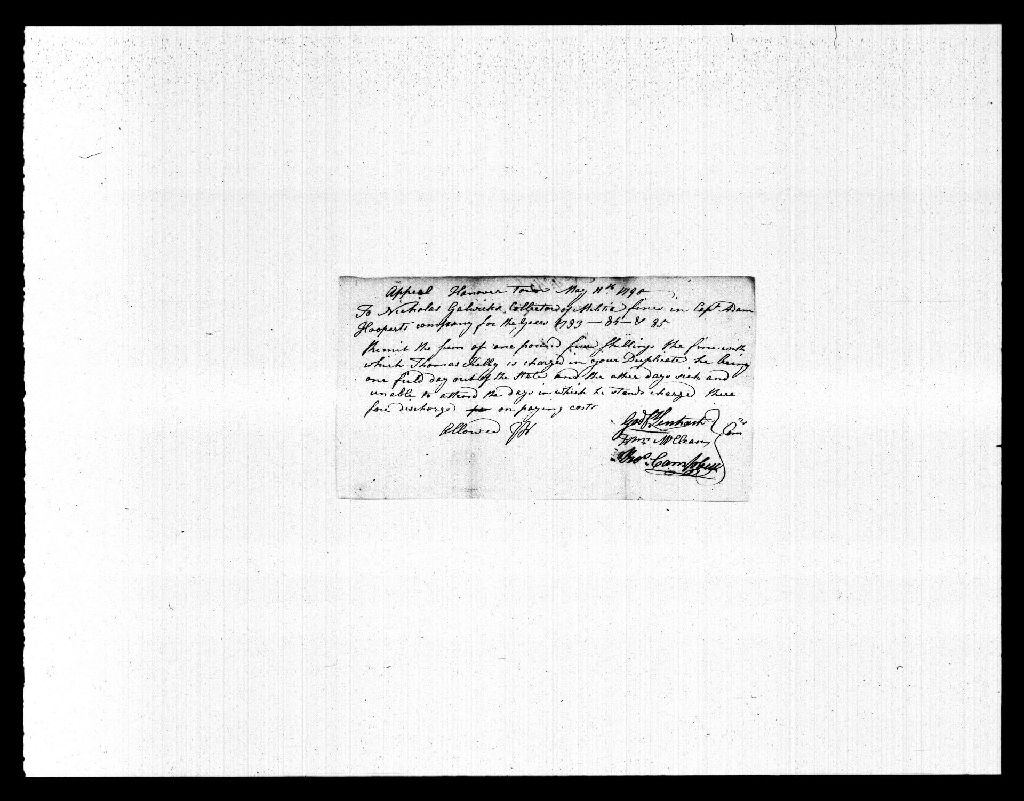 Appeal Hanover Town May 11th 1790
To Nicholas Collector of Militia fines in Capt Adam
Hooperts company for the Years 1783 — 84 — & 85
Remit the sum of one pound five shillings the fine with
which Thomas Kelly is charged in your Duplicate he being
one field day out of the State and the other days sick and
unable to attend the days in which he stands charged there
fore discharged on paying costs
Allowed
Wm McClean
Campbell